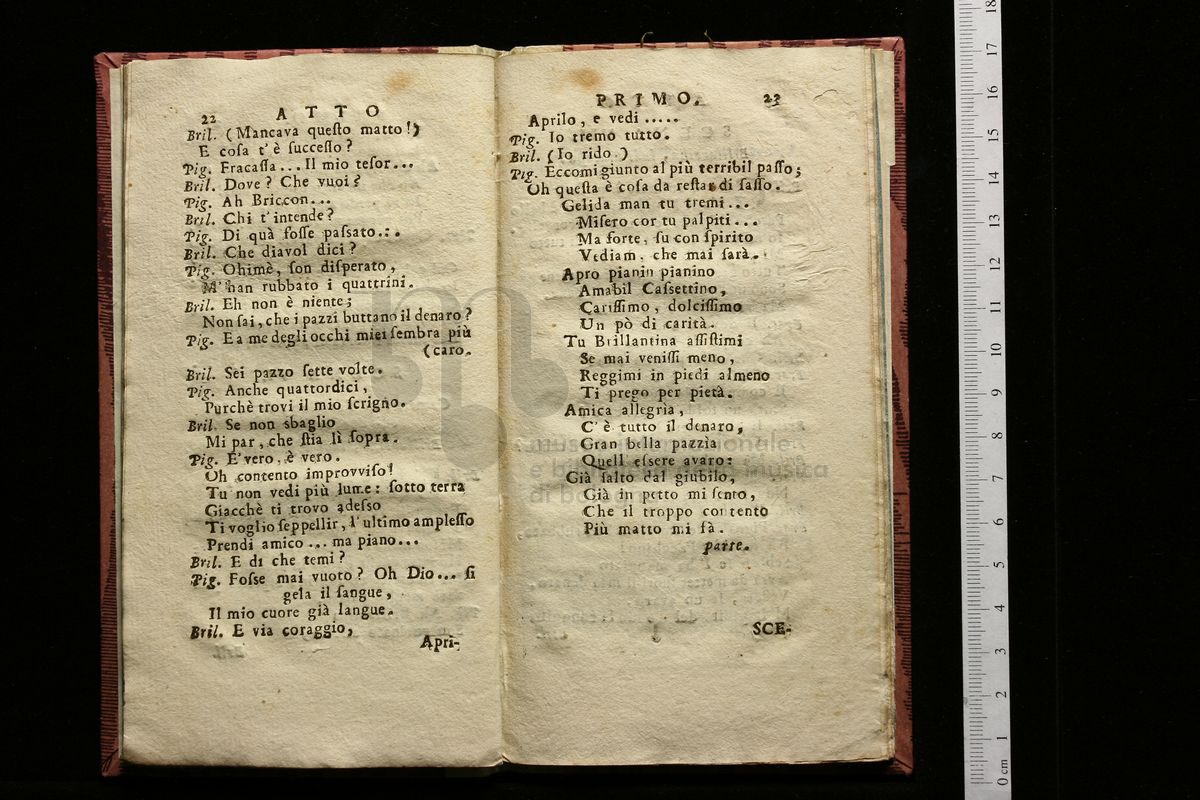 22 ATTO
Bril. (Mancava queſto matto!)
E coſa t'è ſucceſſo?
Pig. Fracaſſa... Il mio teſor...
Bril. Dove? Che vuoi?
Pig. Ah Briccon...
Bril. Chi t'intende?
Pig. Di quà foſſe paſsato...
Bril. Che diavol dici?
Pig. Ohimè, ſon diſperato,
M'han rubbato i quattrini.
Bril. Eh non è niente;
Non ſai, che i pazzi buttano il denaro?
Pig. E a me degli occhi miei ſembra più
(caro.
Bril. Sei pazzo ſette volte.
Pig. Anche quattordici,
Purchè trovi il mio ſcrigno.
Bril. Se non sbaglio
Mi par, che ſtia lì ſopra.
Pig. E' vero, è vero.
Oh contento improvviſo!
Tu non vedi più lume: ſotto terra
Giacchè ti trovo adeſso
Ti voglio ſeppellir, l'ultimo ampleſſo
Prendi amico ... ma piano...
Bril. E di che temi?
Pig. Foſse mai vuoto? Oh Dio... ſi
gela il ſangue,
Il mio cuore già langue.
Bril. E via coraggio,
Apri-
PRIMO. 23
Aprilo, e vedi .....
Pig. Io tremo tutto.
Bril. (Io rido.)
Pig. Eccomi giunto al più terribil paſſo;
Oh queſta è coſa da reſtar di ſaſſo.
Gelida man tu tremi...
Miſero cor tu palpiti...
Ma forte, ſu con ſpirito
Vediam, che mai ſarà.
Apro pianin pianino
Amabil Caſsettino,
Cariſſimo, dolciſſimo
Un pò di carità.
Tu Brillantina aſſiſtimi
Se mai veniſſi meno,
Reggimi in piedi almeno
Ti prego per pietà.
Amica allegria,
C'è tutto il denaro,
Gran bella pazzìa
Quell eſsere avaro:
Già ſalto dal giubilo,
Già in petto mi ſento,
Che il troppo contento
Più matto mi fà.
parte.
SCE-
museo internazionale
e biblioteca della musica
di bologna
0 cm 1 2 3 4 5 6 7 8 9 10 11 12 13 14 15 16 17 18